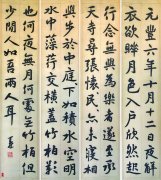 元豐六年十月十二日夜解
衣欲睡月色入戶欣然起
行念無與為樂者遂至承
天寺尋張懷民亦未寢相
與步於中庭下如積水空明
水中藻荇交橫蓋竹柏影
也何夜無月何處無竹柏但
少閒人如吾兩人耳